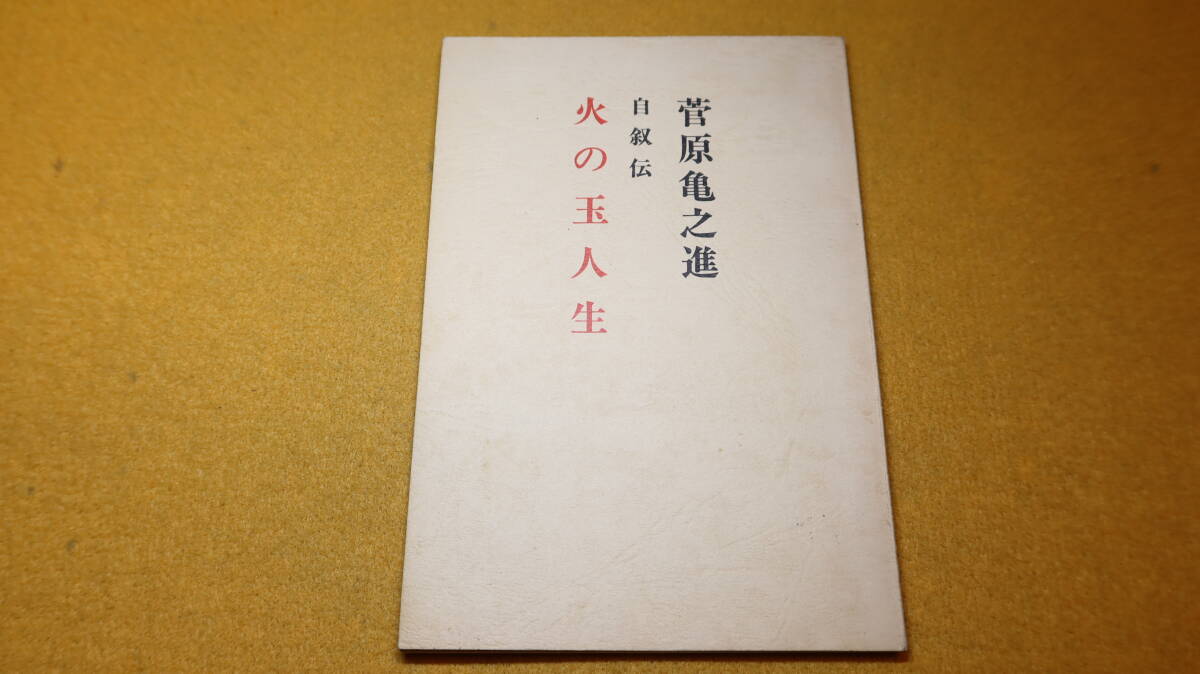 菅原亀之進
自叙伝
火の玉人生